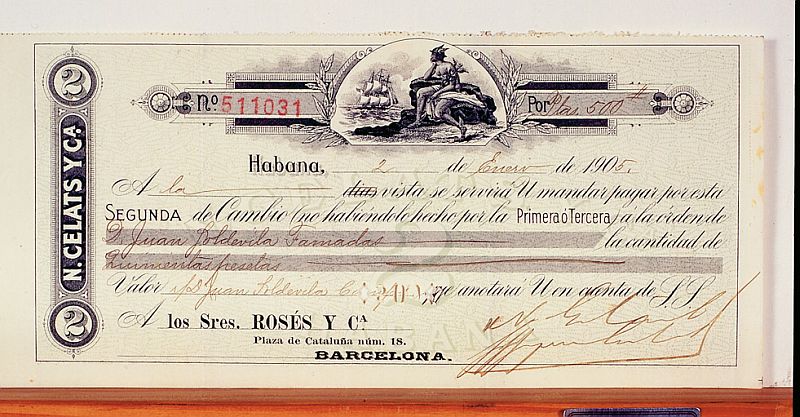 2
N. CELATS Y Cª.
2
Nº 511031
Por Ptas 500
Habana, 2 de Enero de 1905.
A la días vista se servirá U mandar pagar por esta
SEGUNDA de Cambio (no habiéndolo hecho por la Primera ó Tercera) a la orden de
D. Juan Soldevila Famadas la cantidad de
Quinientas pesetas
Valor Juan Soldevila que anotará U en cuenta de S.S.
A los Sres. ROSÉS Y Cª
Plaza de Cataluña núm. 18.
BARCELONA.